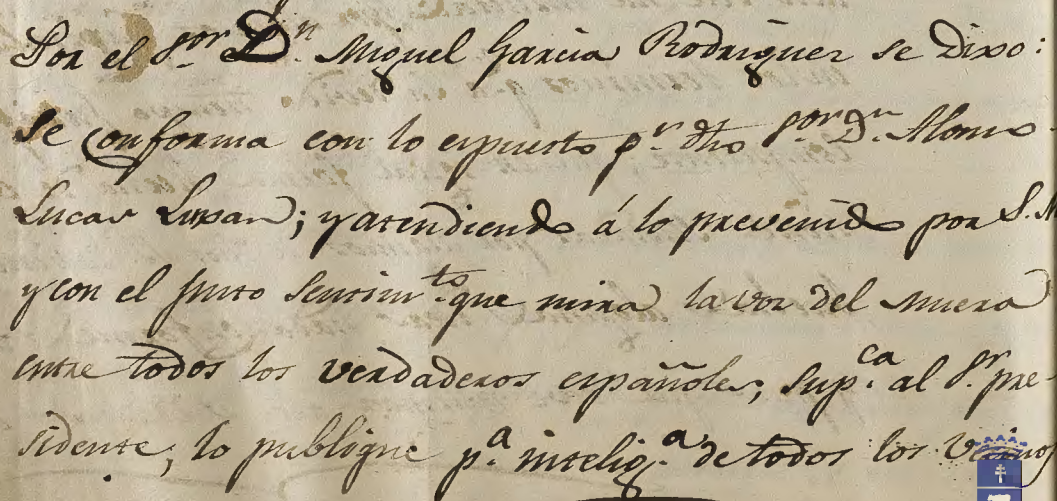 Por el Sor. Dn. Miguel Garcia Rodriguez se Dixo:
se conforma con lo expuesto pr. dho Sor. Dn. Alonso
Lucas Luxan; y atendiendo á lo prevenido por S. M
y con el justo sentimto. que mira la voz del muera
entre todos los verdaderos españoles; supca. al Sr. pre-
sidente, lo publique pa. inteliga. de todos los vecinos